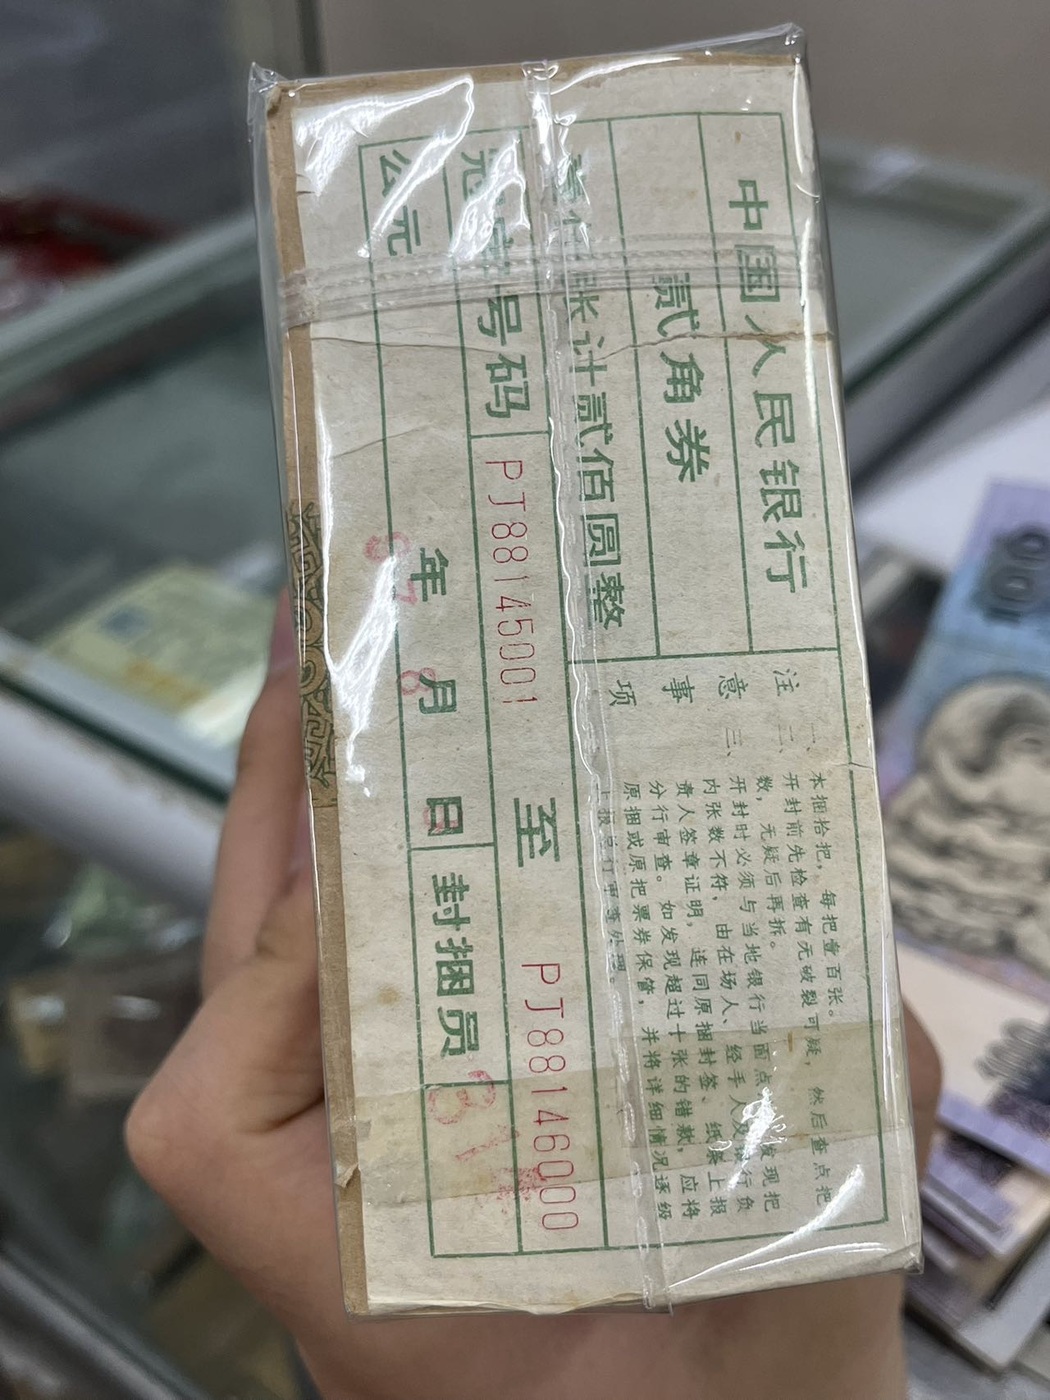 中国人民银行
贰角券
张计贰佰圆整
号码 PJ88145001 至 PJ88146000
公元 87年 8月 日 封捆员
注意事项
一、本捆拾把，每把壹百张。
二、开封前先检查有无破裂可疑，然后查点把
数，无疑后再拆。
三、开封时必须与当地银行当面点 发现把
内张数不符，由在场人、经手人及 行负
责人签章证明，连同原捆封签、纸条上报
分行审查。如发现超过十张的错款，应将
原捆或原把票券保管，并将详细情况逐级